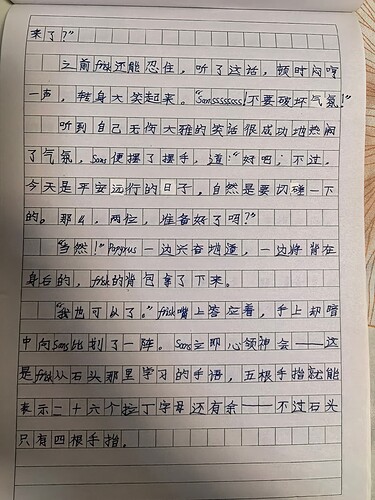 来了？"
之前frisk还能忍住，听了这话，顿时闷哼
一声，转身大笑起来。"Sansssssss！不要破坏气氛！"
听到自己无伤大雅的笑话很成功地热闹
了气氛，Sans便摆了摆手，道："好吧；不过，
今天是平安远行的日子，自然是要切碰一下
的。那么，两位，准备好了吗？"
"当然！"Papyrus一边兴奋地道，一边将背在
身后的，frisk的背包拿了下来。
"我也可以了。"frisk嘴上答应着，手上却暗
中向Sans比划了一阵。Sans立即心领神会——这
是frisk从石头那里学习的手语，五根手指就能
表示二十六个拉丁字母还有余——不过石头
只有四根手指。